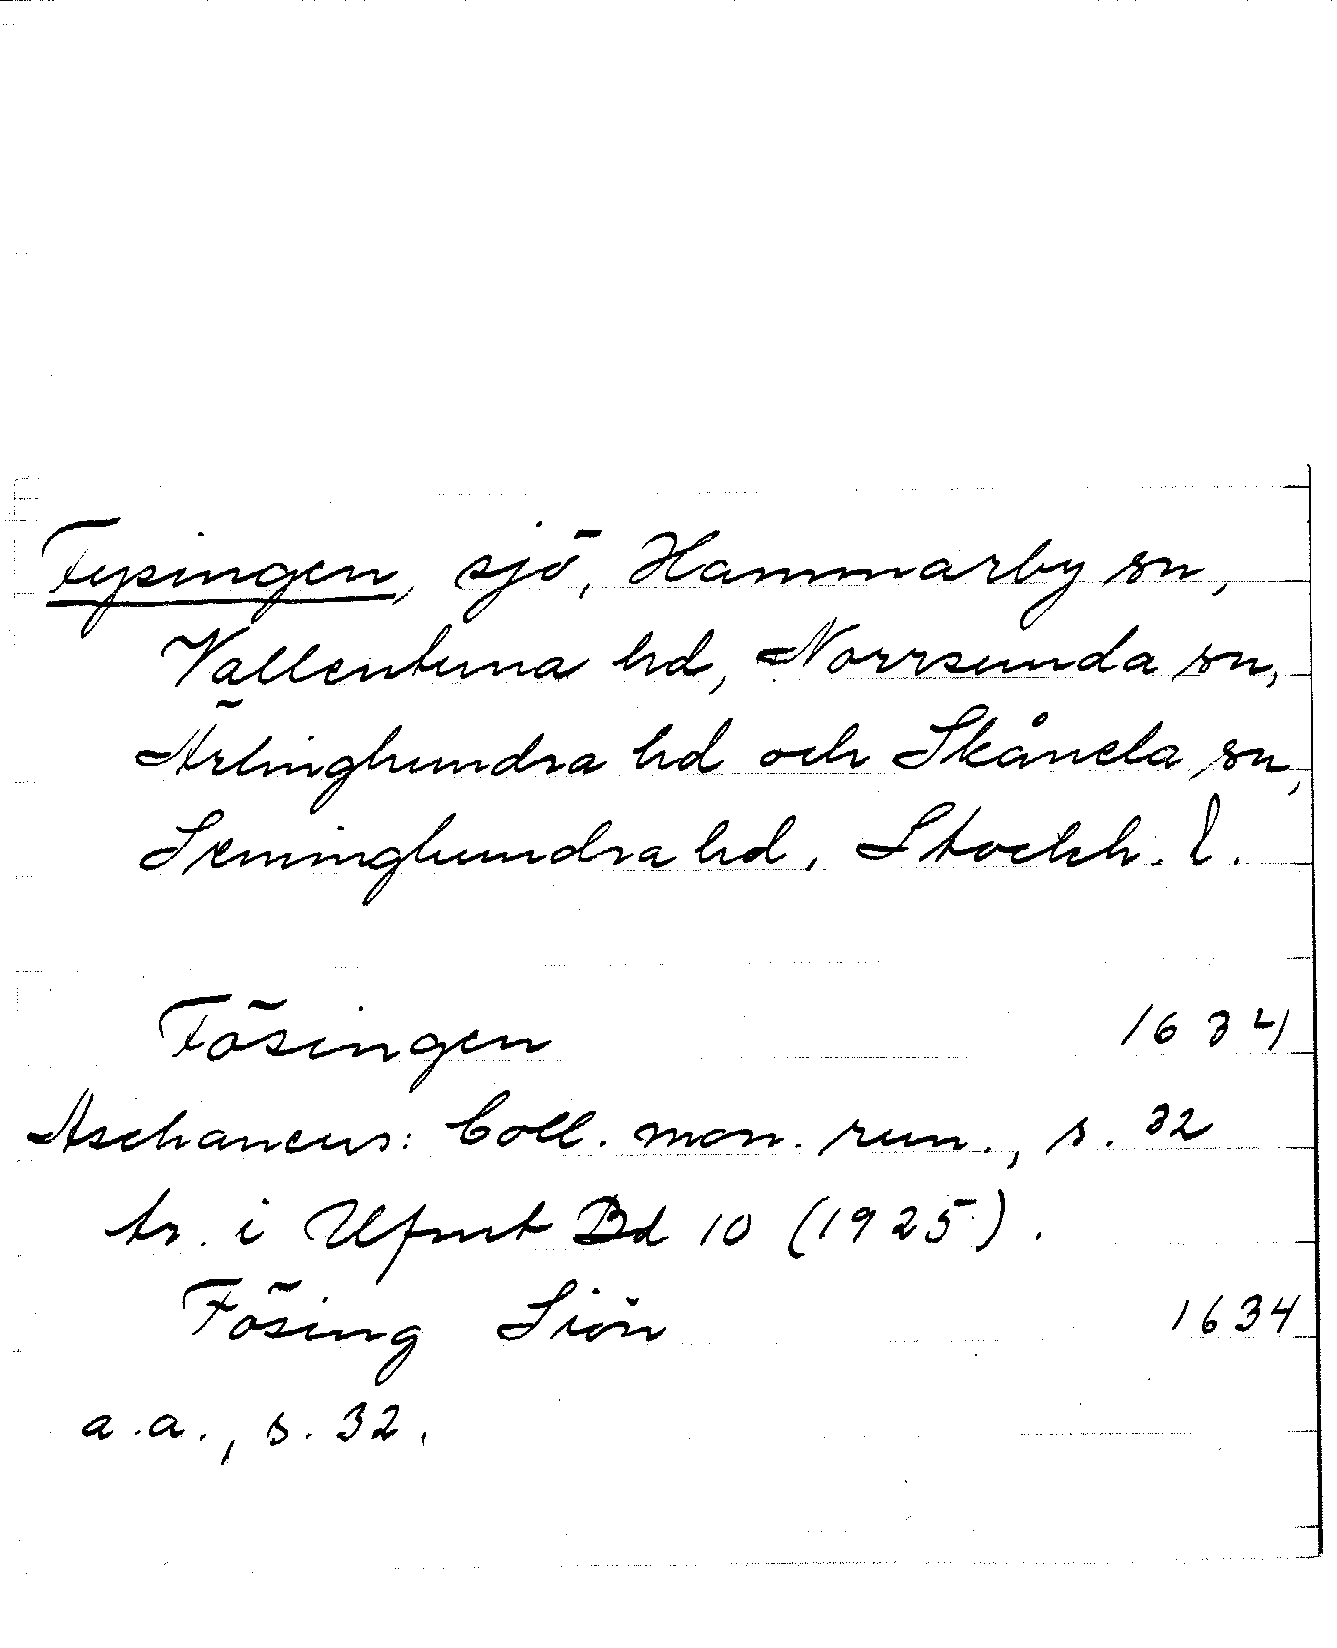 Fysingen, sjö, Hammarby sn,
Vallentuna hd, Norrsunda sn,
Ärlinghundra hd och Skånela sn,
Seminghundra hd, Stockh. l.
Fösingen 1634
Aschaneus: Coll. mon. run., s. 32
tr. i Ufmt Bd 10 (1925).
Fösing Siön 1634
a.a., s. 32.